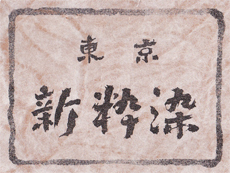 東京
新粋染